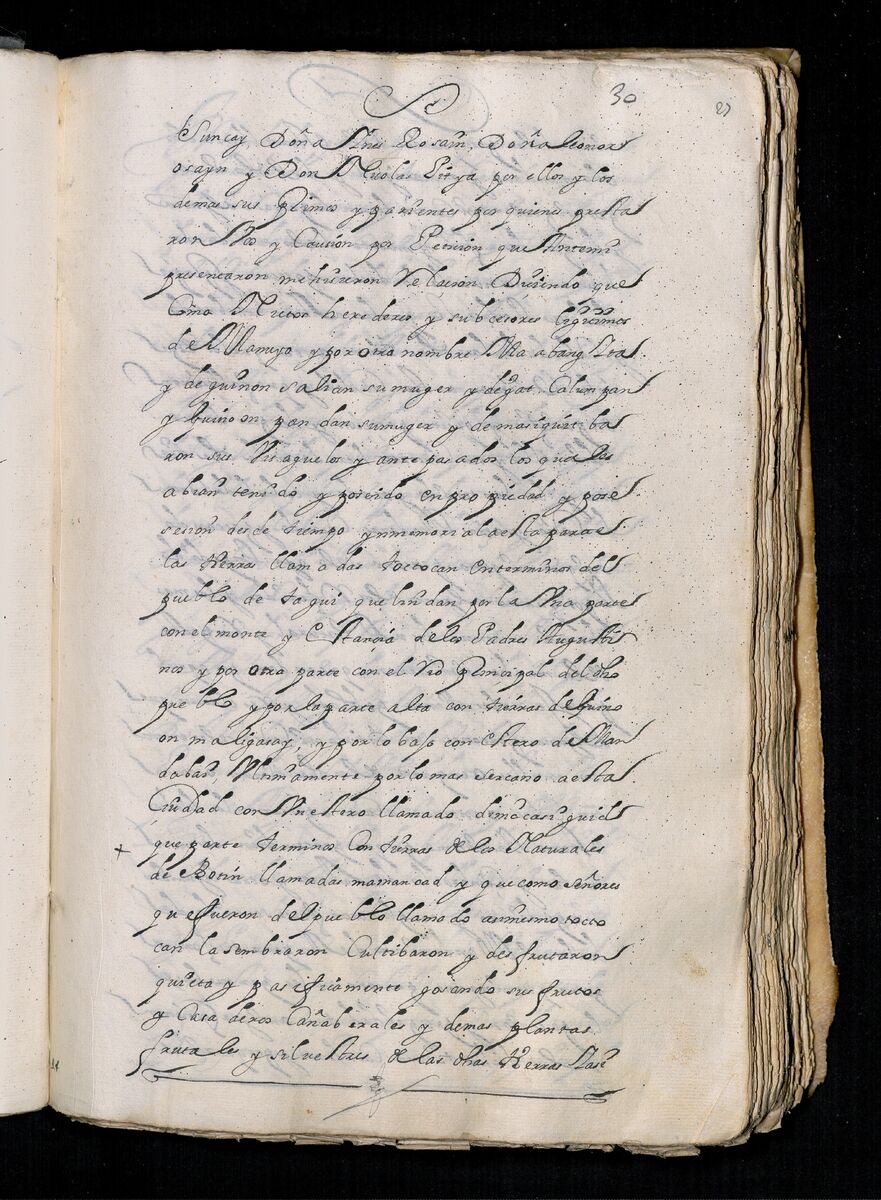 30
27
Suncay, Doña Ines Cosain, Doña leonor
osayn y Don Nicolas Pitya por ellos y los
demas sus Primos y parientes por quienes presta
ron Vos y Causion por Peticion que Antemi
presentaron me hisieron Relacion Disiendo que
Como Nietos herederos y subcesores ligitimos
de Mamuyo y por otro nombre
y de guinon salian su muger y de gat Calumpan
y buinoon pan dan su muger y demas
ron sus Visaguelos y ante pasados los quales
abian tenido y poseido en propiedad y pose
sesion desde tiempo ynmemorial a esta parte
las tierras llamadas toctocan en terminos del
pueblo de taqui que lindan por la Vna parte
con el monte y Estançia de los Padres Augusti
nos y por otra parte con el Rio Prinçipal del dho
pueblo y por la parte alta con tierras de buino
on maligasay, y por lo baso con estero de Man
daban, Vltimamente por lo mas sercano a esta
Ciudad con Vn estero llamado dimacasiguid
que parte terminos Con tierras de los Naturales
de Botin llamadas mamancad y que como señores
que fueron del pueblo llamado asimesmo tocto
can la sembraron Cultibaron y desfrutaron
quieta y pasificamente gosando sus frutos
y Casaderos Cañaberales y demas plantas
frutales y siluestres de las dhas tierras